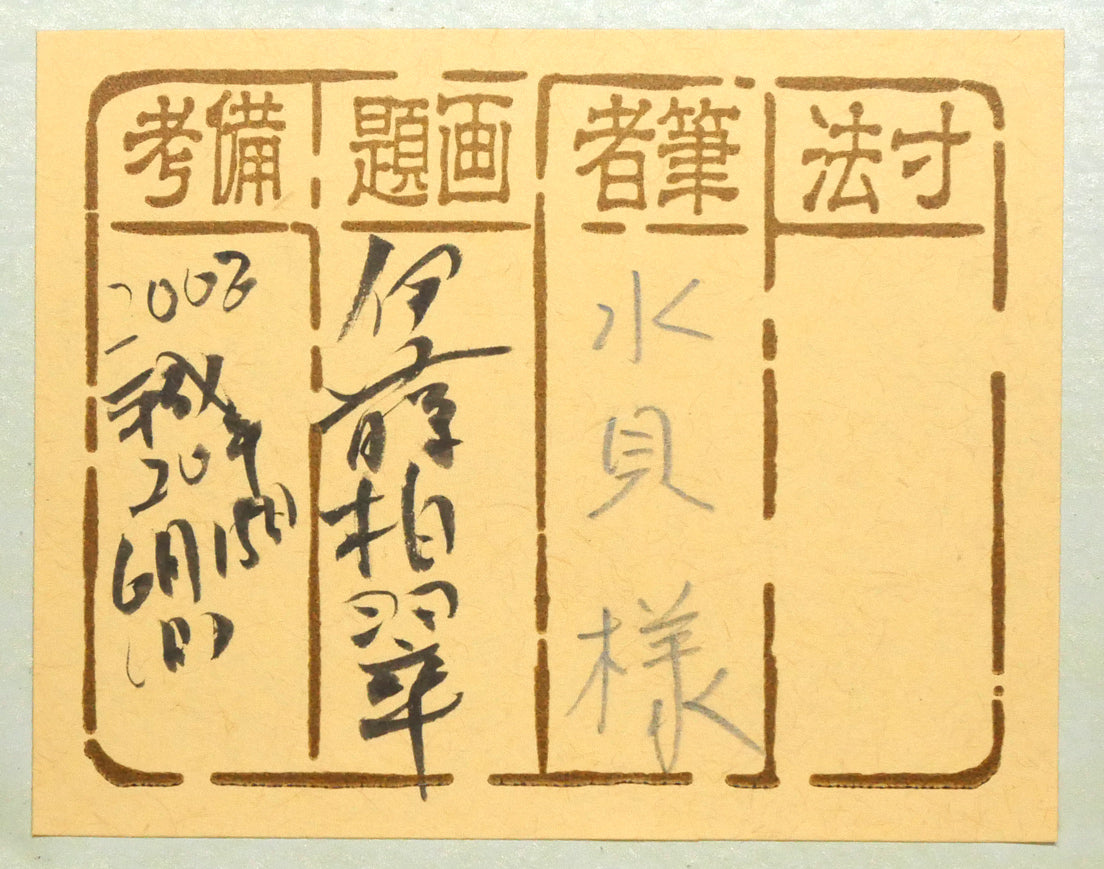 寸法
筆者
水貝様
画題
伊藤柏翠
備考
2008
平成20年
6月15日
(日)